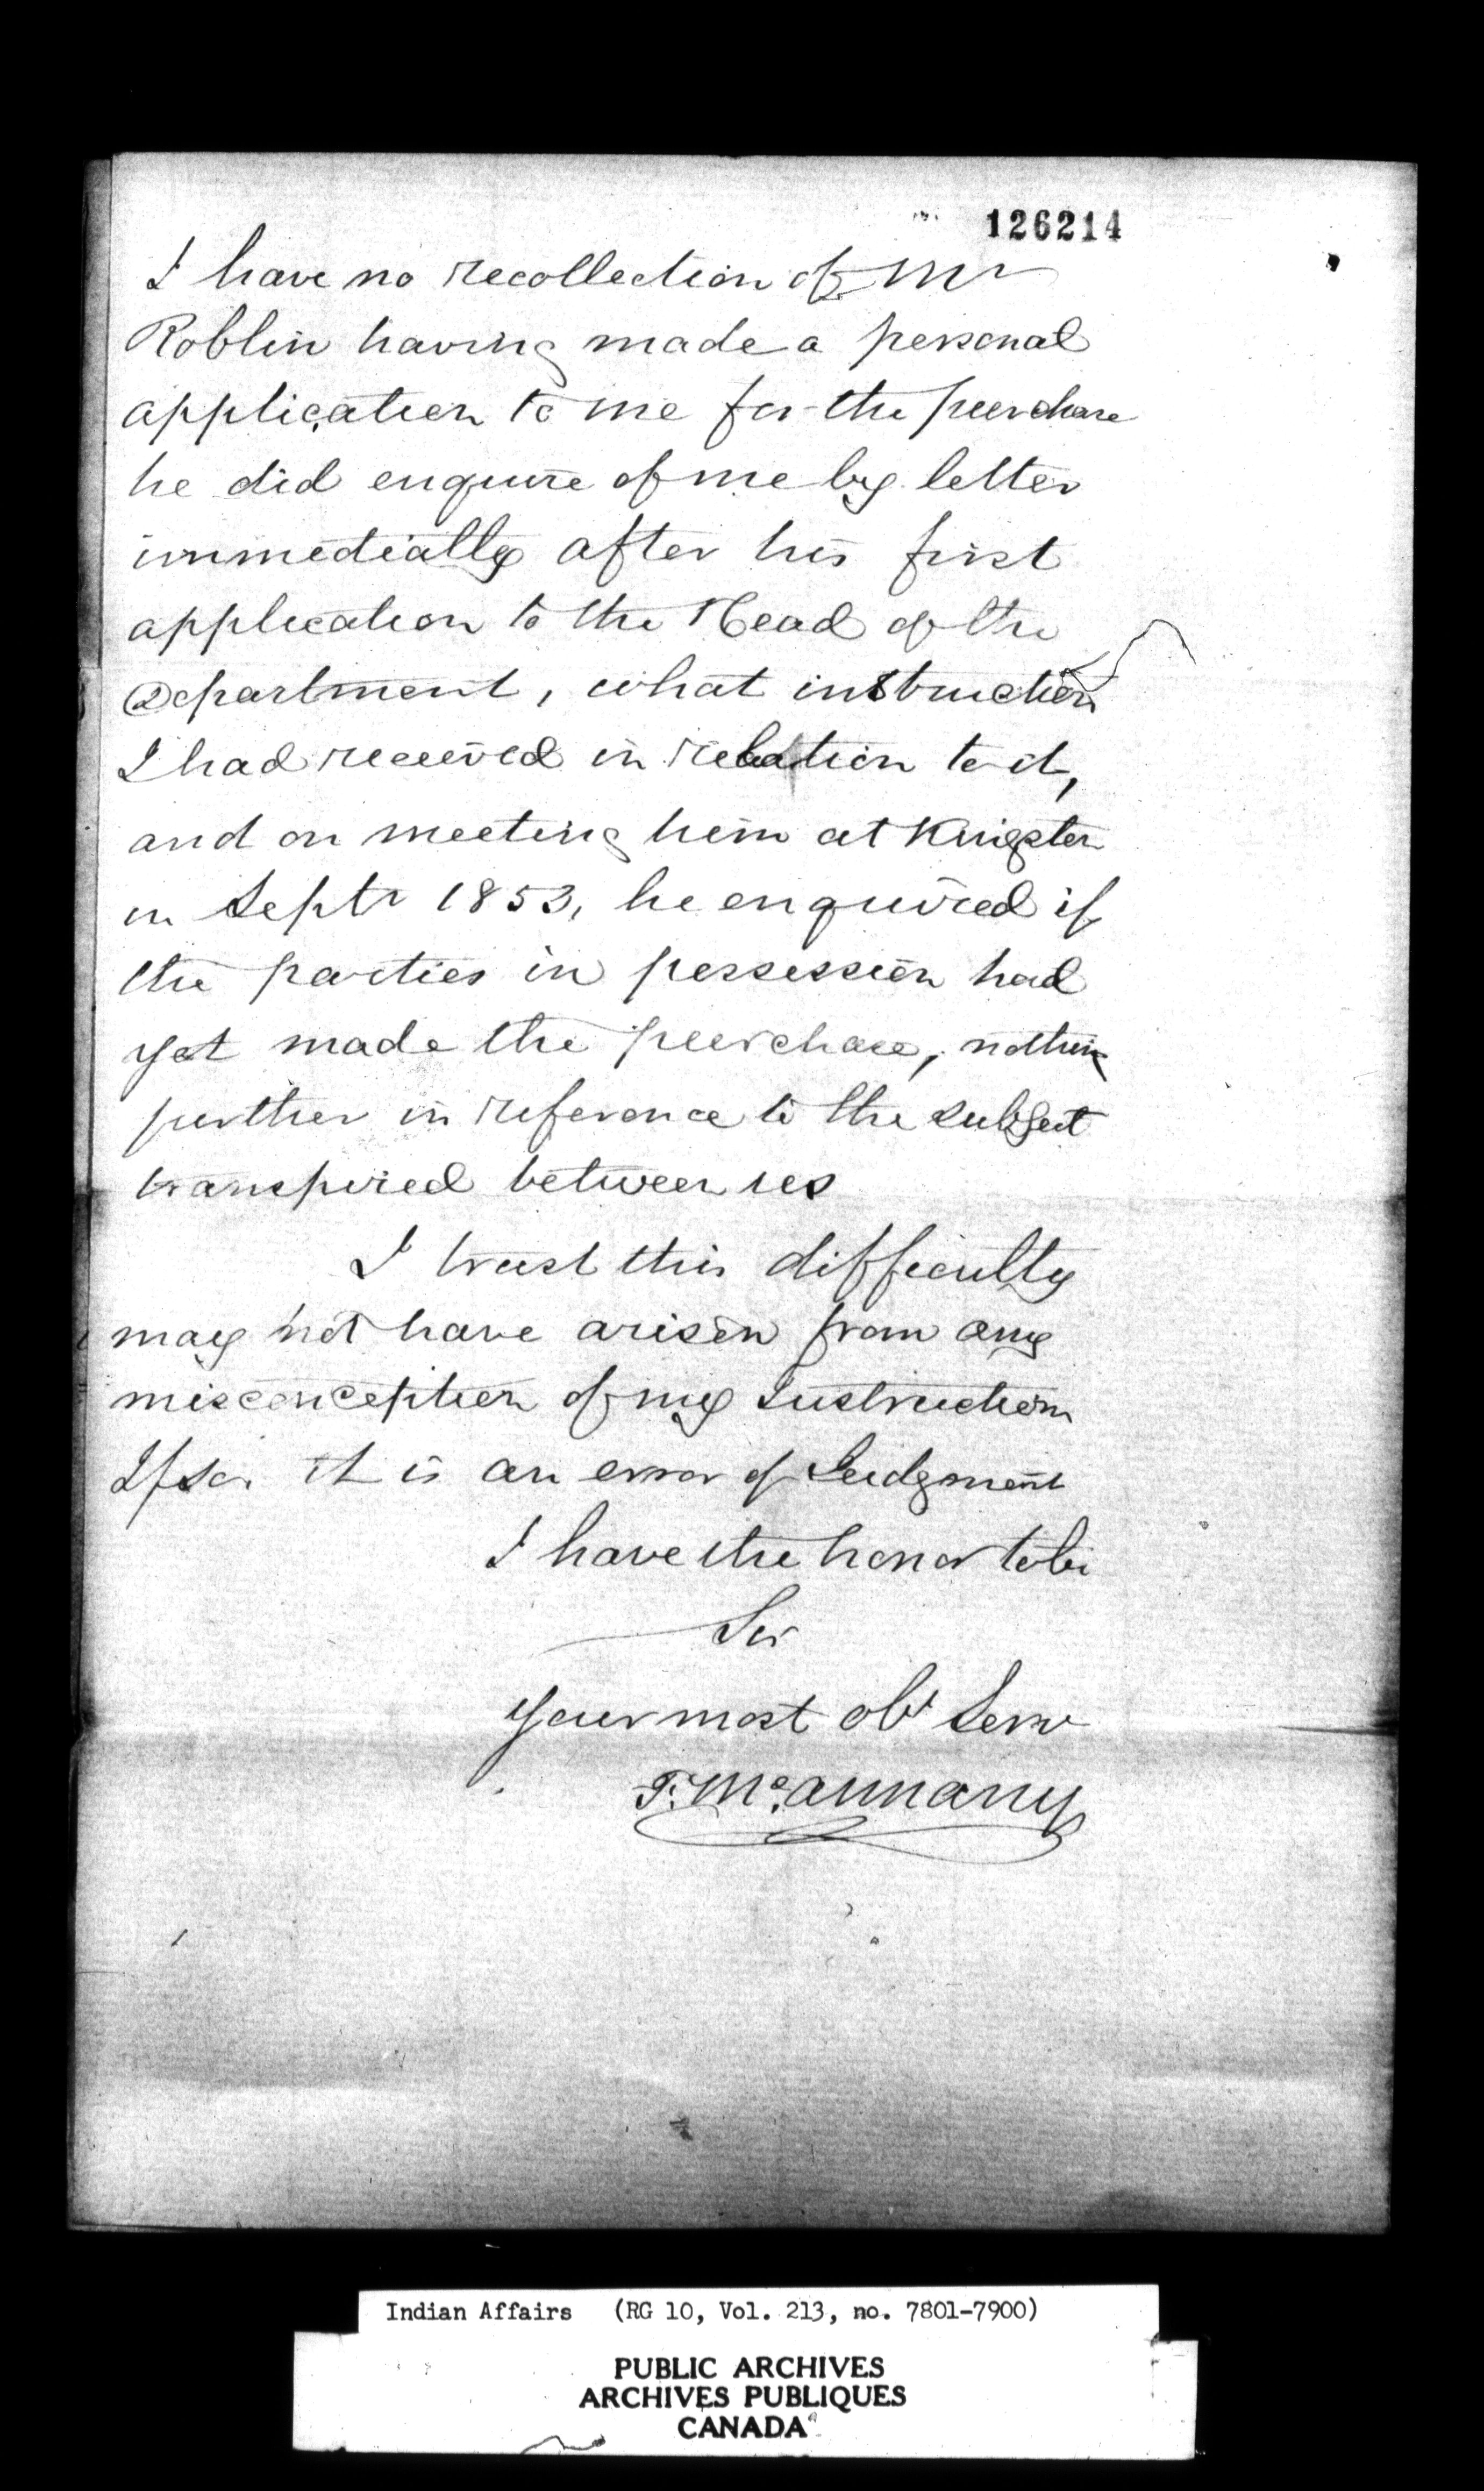 126214
I have no recollection of Mr
Roblin having made a personal
application to me for the purchase
he did enquire of me by letter
immediatly after his first
application to the Head of the
Department, what instruction
I had received in relation to it,
and on meeting him at Kingston
in Septr 1853, he enquired if
the parties in possession had
yet made the purchase, nothing
further in reference to the subject
transpired between us
I trust this difficulty
may not have arisen from any
misconception of my Instructions
If so. it is an error of Judgment
I have the honor to be
Sir
Your most obt Serv
T. McAnnany
Indian Affairs (RG 10, Vol. 213, no. 7801-7900)
PUBLIC ARCHIVES
ARCHIVES PUBLIQUES
CANADA